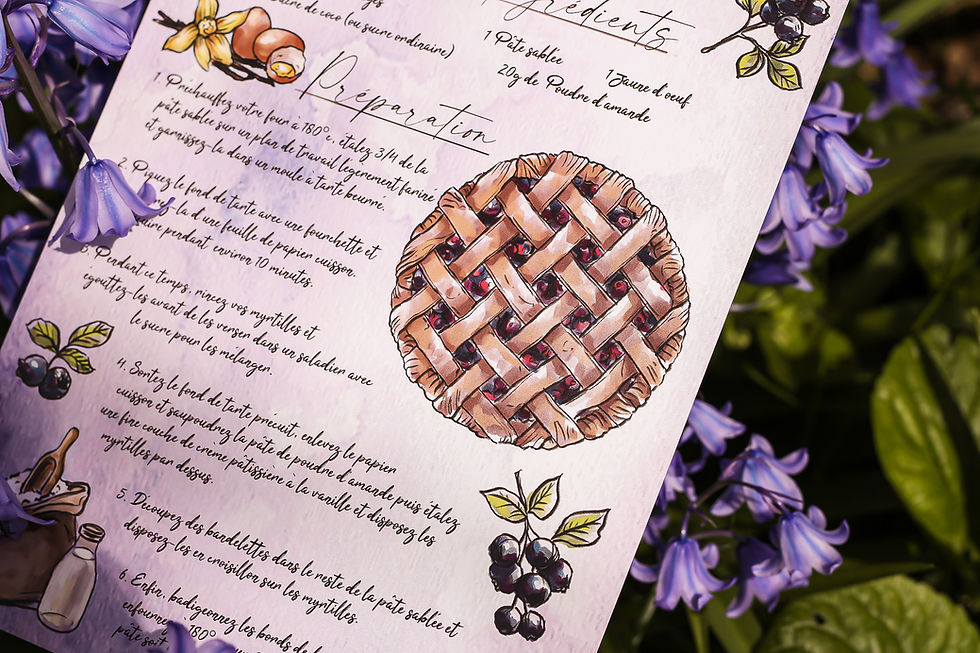 sucre de coco (ou sucre ordinaire)
grédients
1 Pâte sablée
1 Jaune d'oeuf
20g de Poudre d'amande
Préparation
1. Préchauffez votre four à 180°c, étalez 3/4 de la
pâte sablée sur un plan de travail légèrement fariné
et garnissez-la dans un moule à tarte beurré.
2. Piquez le fond de tarte avec une fourchette et
-la d'une feuille de papier cuisson.
pendant environ 10 minutes.
3. Pendant ce temps, rincez vos myrtilles et
égouttez-les avant de les verser dans un saladier avec
le sucre pour les mélanger.
4. Sortez le fond de tarte précuit, enlevez le papier
cuisson et saupoudrez la pâte de poudre d'amande puis étalez
une fine couche de crème pâtissière a la vanille et disposez les
myrtilles par dessus.
5. Découpez des bandelettes dans le reste de la pâte sablée et
disposez-les en croisillon sur les myrtilles.
6. Enfin, badigeonnez les bords de
enfourne 180°
pâte soit